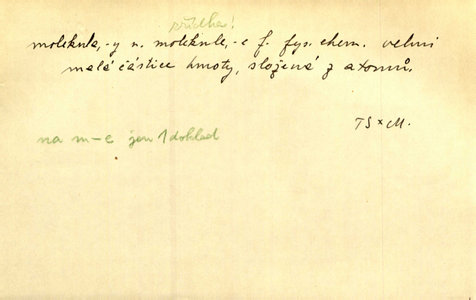 přídka!
molekula, -y n. molekule, -e f. fys. chem. velmi
malá částice hmoty, složená z atomů.
TS × M.
na m-e jen 1 doklad